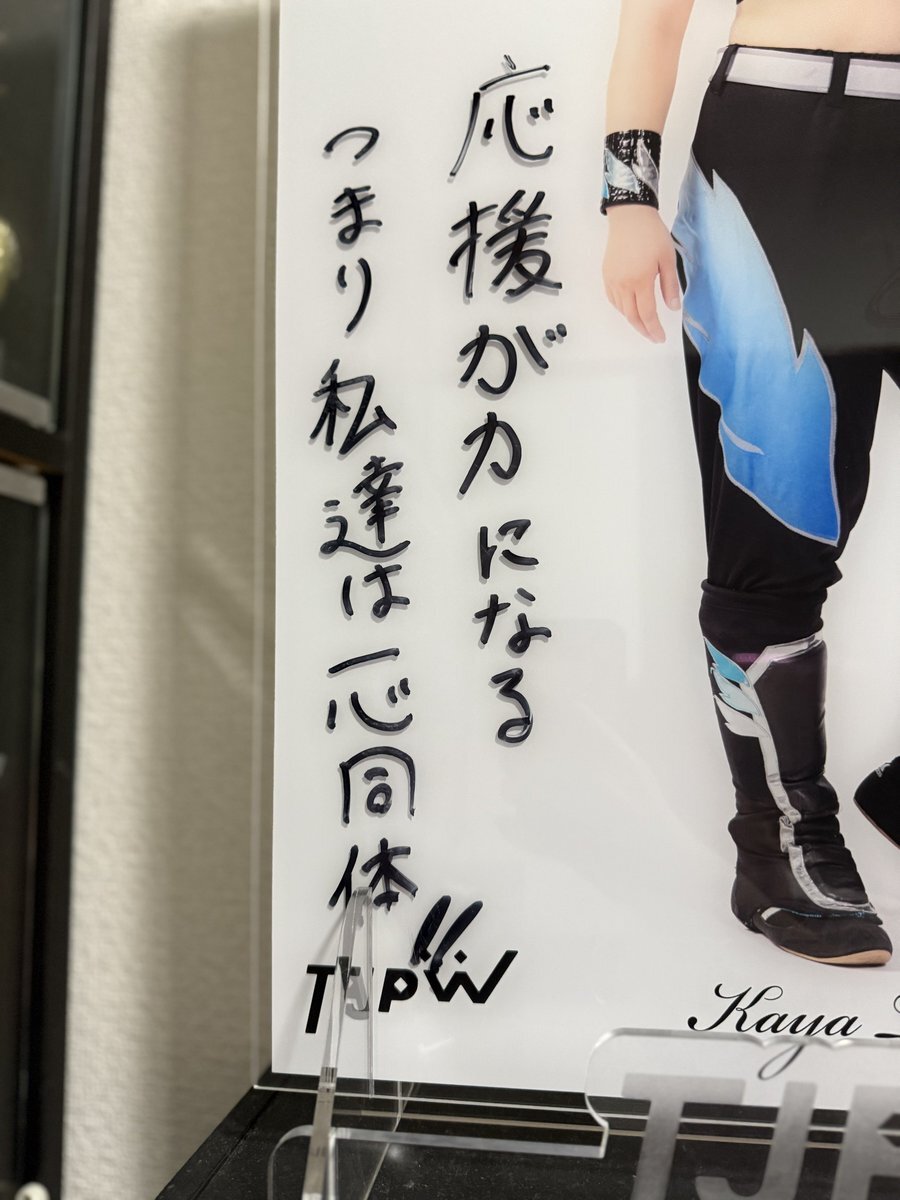 応援が力になる
つまり私達は一心同体!!
TJPW
Kaya